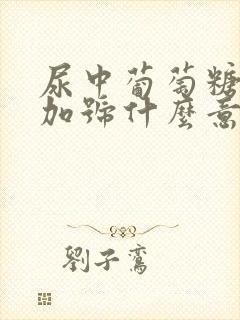 尿中葡萄糖
加號什麼意
劉子鸞